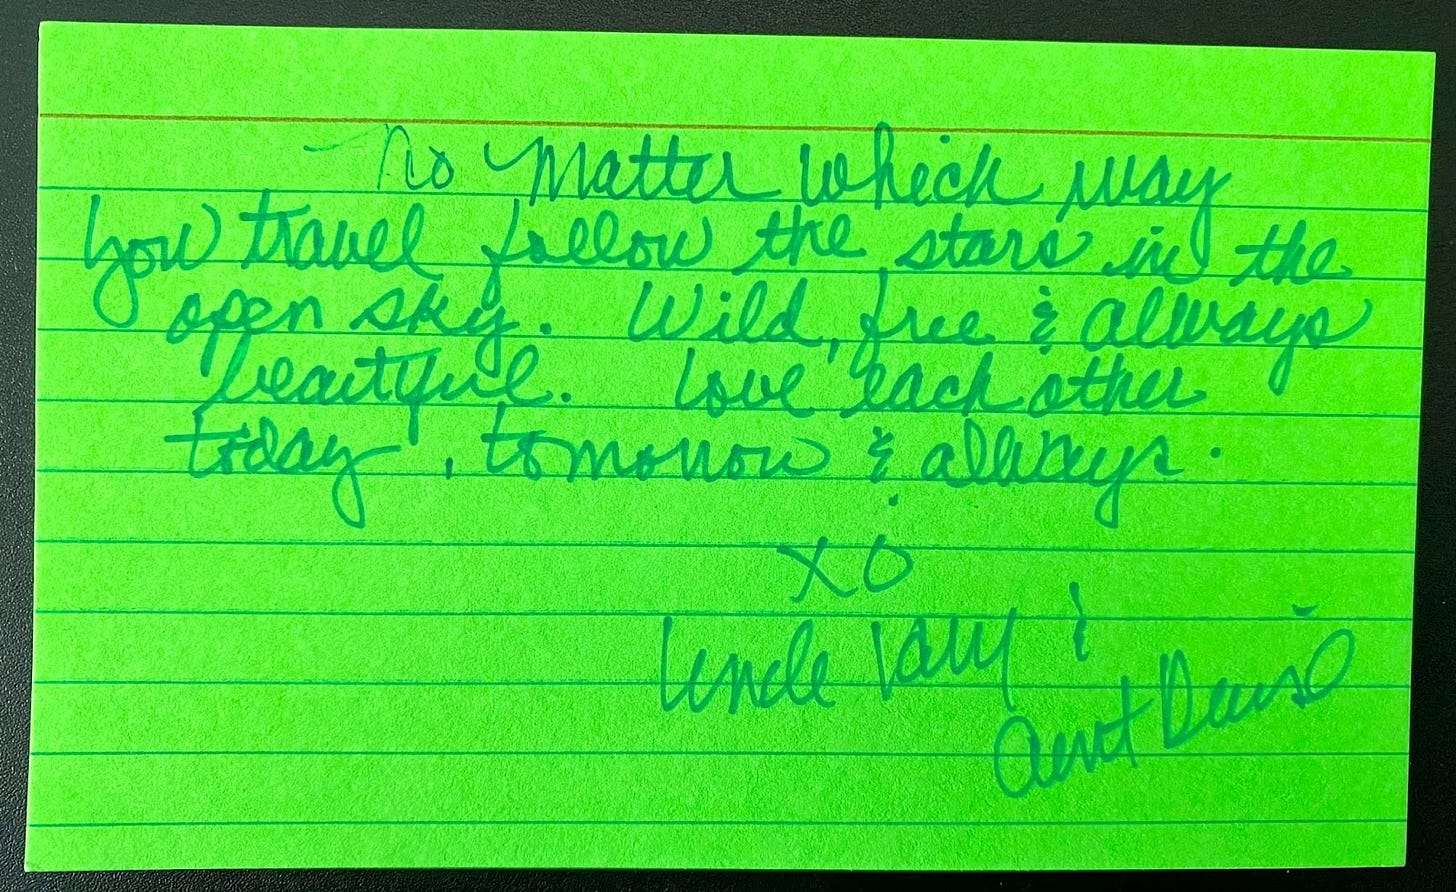 No Matter which way
you travel follow the stars in the
open sky. Wild, free & always
beautiful. Love each other
today, tomorrow & always.
XO
Uncle &
Aunt Denise